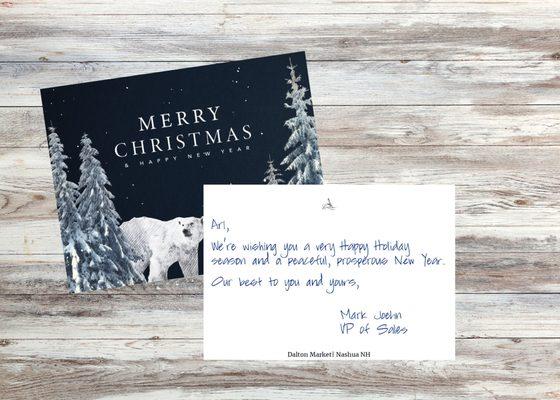 MERRY
CHRISTMAS
& HAPPY NEW YEAR
Ari,
We're wishing you a very Happy Holiday
season and a peaceful, prosperous New Year.
Our best to you and yours,
Mark Joehn
VP of Sales
Dalton Market| Nashua NH